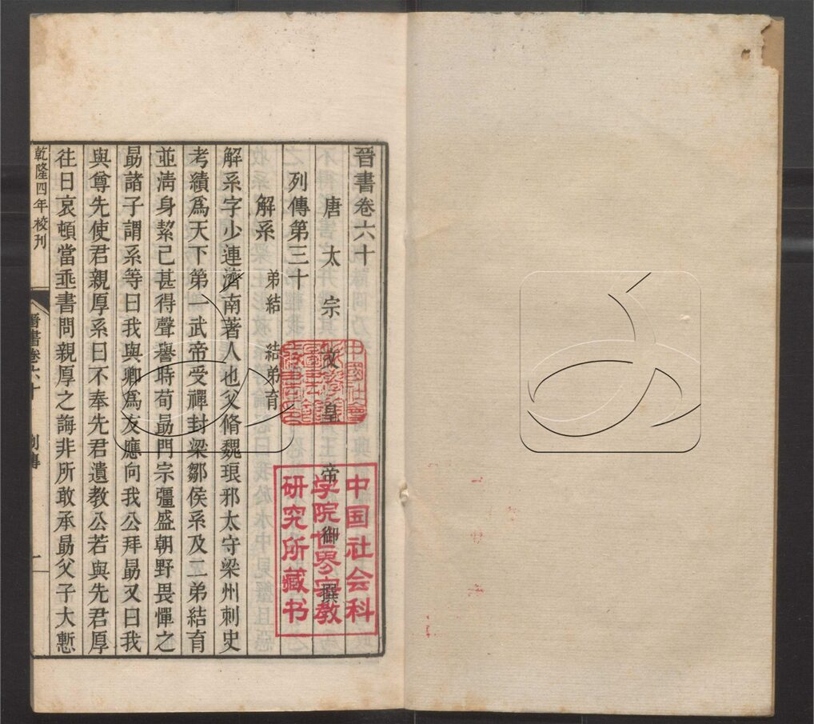 晉書卷六十
唐太宗文皇帝御撰
列傳第三十
解系 弟結 結弟育
解系字少連濟南著人也父脩魏琅邪太守梁州刺史
考績爲天下第一武帝受禪封梁鄒侯系及二弟結育
並淸身絜己甚得聲譽時荀勗門宗彊盛朝野畏憚之
勗諸子謂系等曰我與卿爲友應向我公拜勗又曰我
與尊先使君親厚系曰不奉先君遺教公若與先君厚
往日哀頓當垂書問親厚之誨非所敢承勗父子大慙
乾隆四年校刊
晉書卷六十
列傳
一
中国社会科
学院世界宗教
研究所藏书